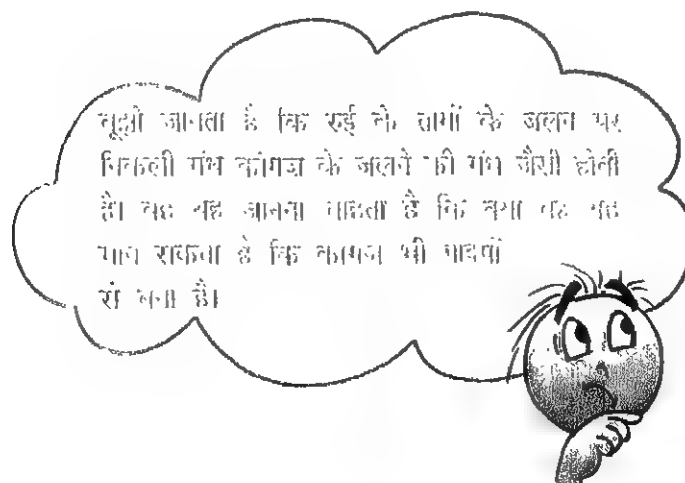 बूझो जानता है कि रुई के तागों के जलने पर
निकली गंध कागज के जलने की गंध जैसी होती
है। वह यह जानना चाहता है कि क्या वह यह
मान सकता है कि कागज भी पादपों
से बना है।